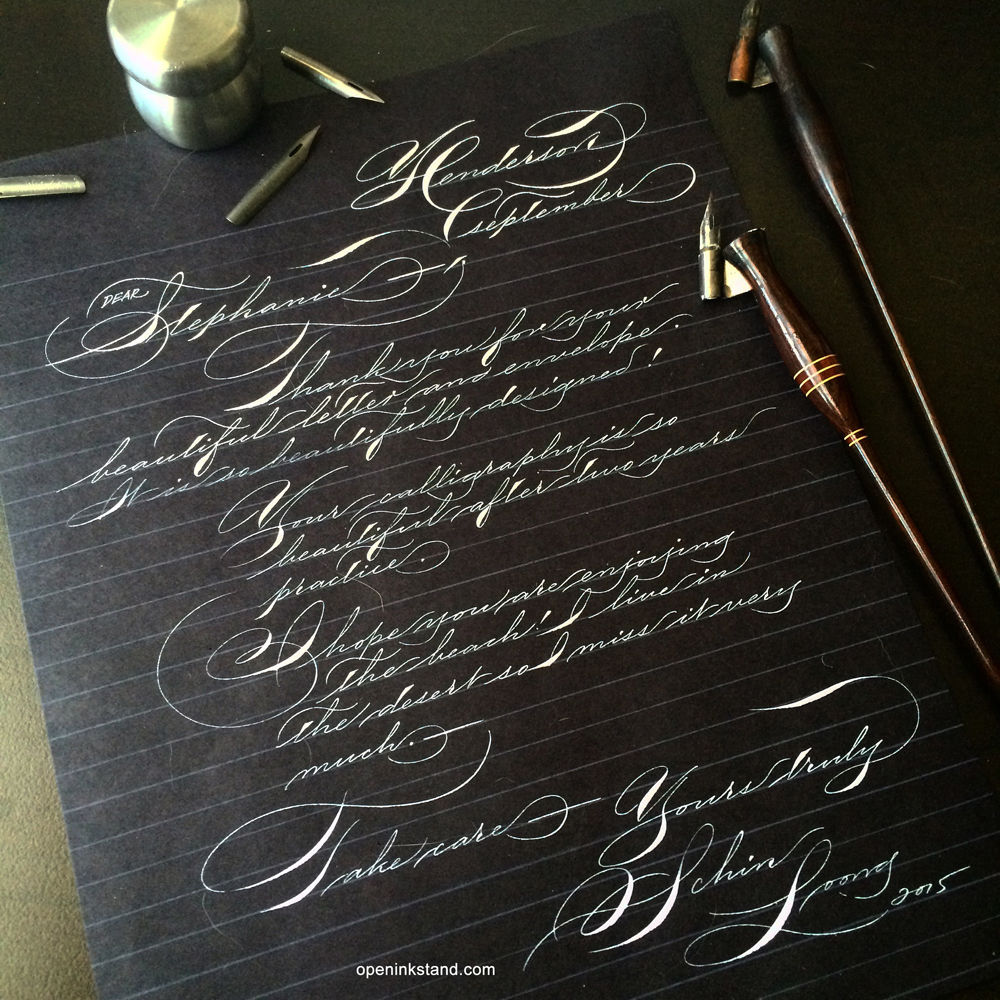 Henderson
September
DEAR Stephanie,
Thank you for your
beautiful letter and envelope.
It is so beautifully designed!
Your calligraphy is so
beautiful after two years
practice.
I hope you are enjoying
the beach! I live in
the desert so I miss it very
much.
Take care
Yours truly
Schin Loong 2015
openinkstand.com